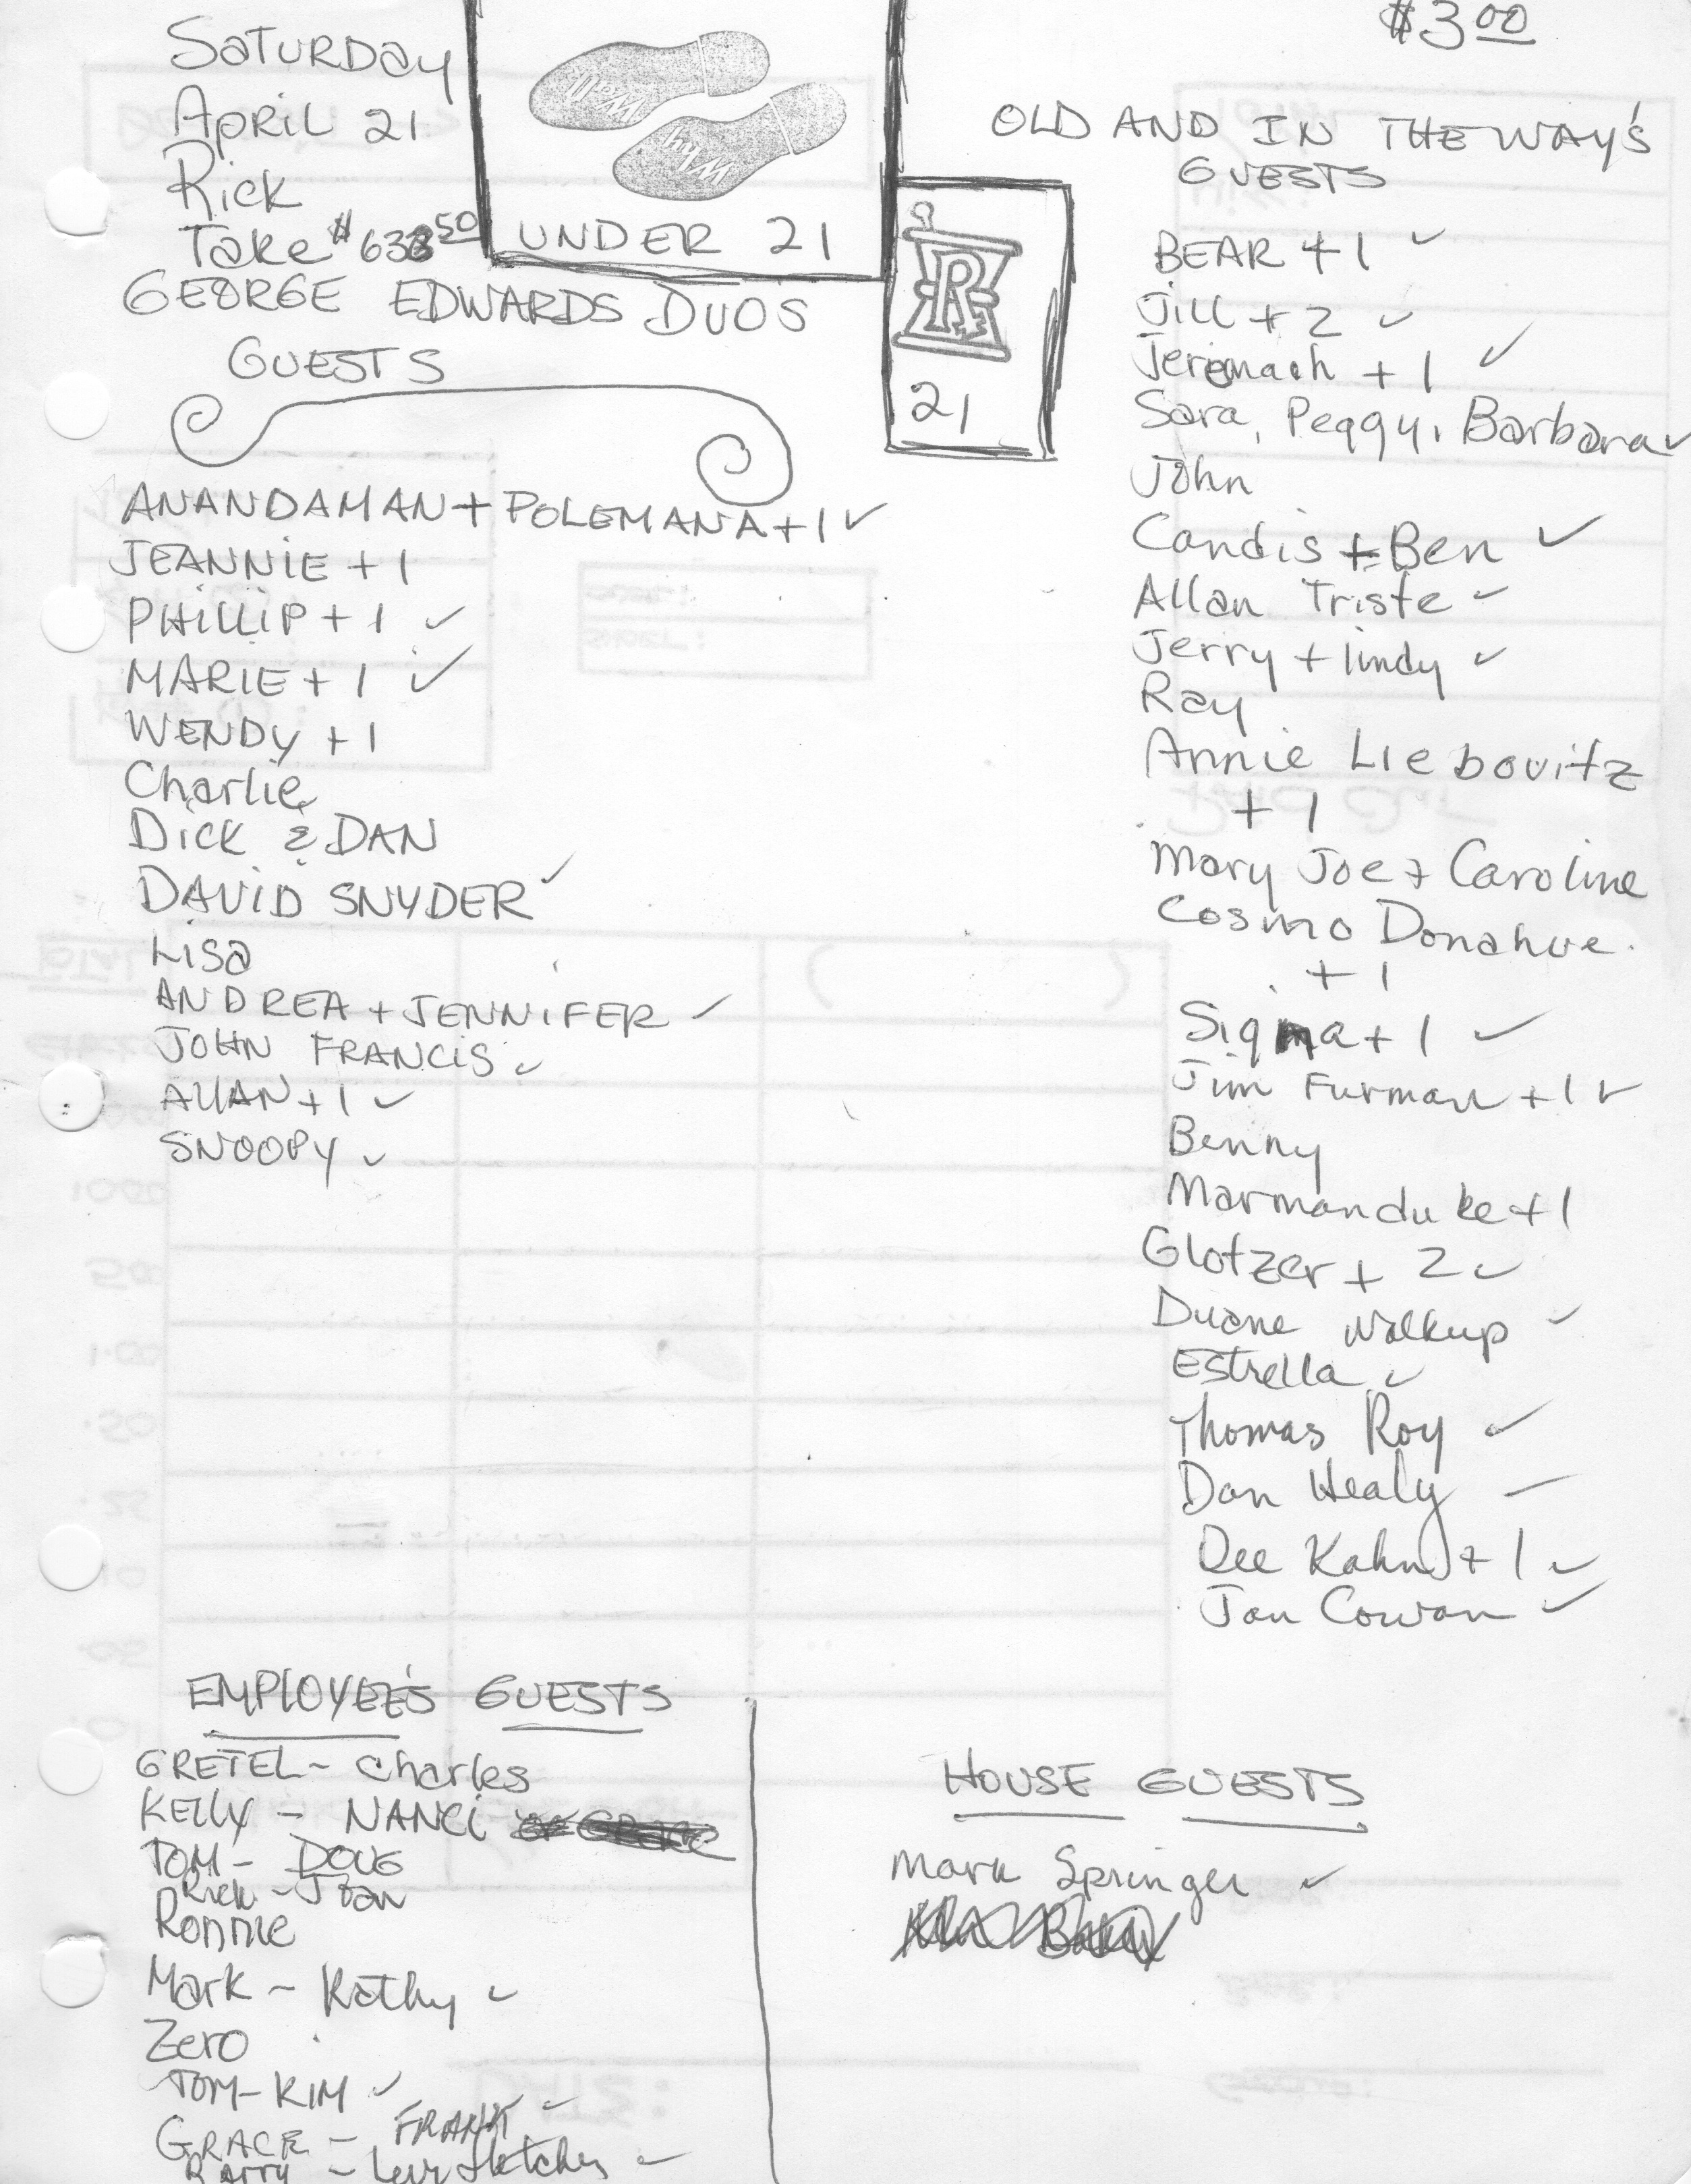 SATURDAY
APRIL 21
Rick
Take $638.50
UNDER 21
21
$3.00
GEORGE EDWARDS DUO'S
GUESTS
ANANDAMAN + POLEMANA + 1 ✓
JEANNIE + 1
PHILLIP + 1 ✓
MARIE + 1 ✓
WENDY + 1
Charlie
Dick & DAN
DAVID SNYDER ✓
Lisa
ANDREA + JENNIFER ✓
JOHN FRANCIS ✓
ALLAN + 1 ✓
SNOOPY ✓
OLD AND IN THE WAY'S
GUESTS
BEAR + 1 ✓
Jill + 2 ✓
Jeremach + 1 ✓
Sara, Peggy, Barbara ✓
John
Candis + Ben ✓
Allan Triste ✓
Jerry + lindy ✓
Ray
Annie Liebovitz
+ 1
Mary Joe + Caroline
Cosmo Donahue
+ 1
Sigma + 1 ✓
Jim Furman + 1 ✓
Benny
Marmanduke + 1
Glotzer + 2 ✓
Duane Walkup ✓
Estrella ✓
Thomas Roy ✓
Dan Healy –
Dee Kahn + 1 ✓
Jan Cowan ✓
EMPLOYEE'S GUESTS
GRETEL - Charles
KELLY - NANCI
TOM - DOUG
Rick - Joan
Ronnie
Mark - Kathy ✓
Zero
TOM - KIM ✓
GRACE - FRANK ✓
BARRY - ✓
HOUSE GUESTS
Mark Springer ✓